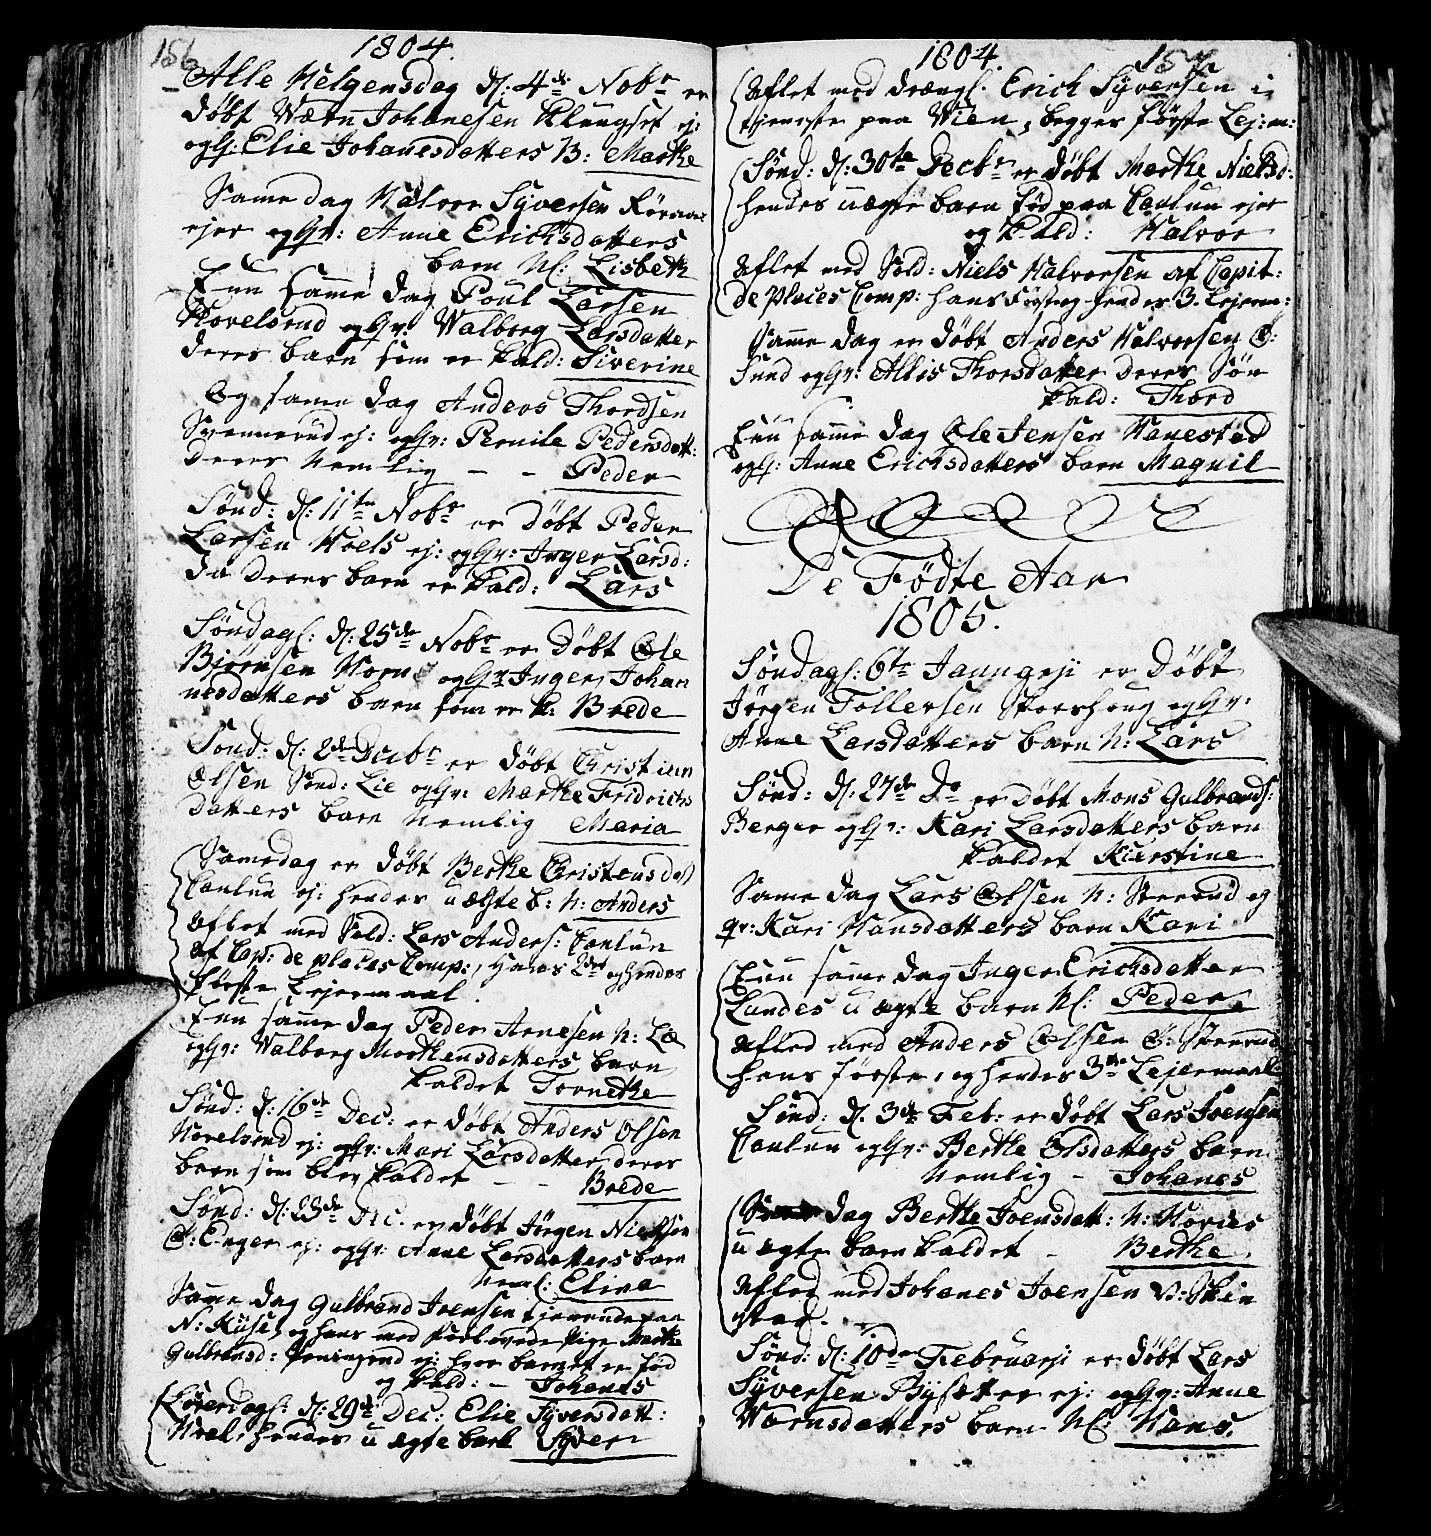 156
1804.
Alle Helgensdag d: 4de Nobr er
døbt Wætn Johanesen Klungset ej:
og hj: Elie Johanesdatters B: Marthe
Samedag Halvor Syversen
ejer og hr: Anne Erichsdatters
barn Nl: Lisbeth
Enn samme dag Poul Larsen
Hovelsrud og hr: Walborg Larsdatter
deres barn som er kald: Siverine
Og samme dag Anders Thordsen
Svennerud ej: og hr: Pernile Pedersdatt:
deres nemlig - - Peder
Sønd: d: 11te Nobr er døbt Peder
Larsen Hoels ej: og hr: Inger Larsd:
da deres barn er kald: Lars
Søndags: d: 25de Nobr er døbt Ole
Bjørnsen Horne og hr Inger Johan
nesdatters barn som er k: Brede
Sønd: d: 2de Decbr er døbt Christian
Olsen Sønd: Lie og hr: Marthe Fridrichs
datters barn nemlig Maria
Samedag er døbt Berthe Christensdat
Caulun ej: hendes uægte b: N: Anders
aflet med Sold: Lars Anders: Caulun
af Cap: de places Comp:, Hans 2det og hendes
første Lejermaal.
Enn samme dag Peder Arnesen N: Læ
og hr: Walborg Morthensdatters barn
kaldet Tornethe
Sønd: d: 16de Dec: er døbt Anders Olsen
Hovelsrud ej: og hr: Mari Larsdatter deres
barn som blev kaldet - - Brede
Sønd: d: 23de Dec. er døbt Jørgen Nielsen
Ø: Enger ej: og hr: Anne Larsdatters barn
neml: Elina
Same dag Gulbrand Joensen tjenende paa
N: Kiise, og hans med forlovede Pige Marthe
Gulbransd: ej: hvor barnet er fød
og kald: - Johanes
Løverdags: d: 29de Dec: Elie Syversdatt:
Hval, hendes uægte barn Syver
1804.
157
aflet med drængs. Erich Syversen i
tjeneste paa Wien, begges første Lej:m:
Sønd: d: 30te Decbr er døbt Marthe Nielsd:
hendes uægte barn fød paa Caulun ejer
og kald: Halvor
Aflet med Sold: Niels Halvorsen af Capit:
de Places Comp: hans første og hendes 3. Lejerm:
Samme dag er døbt Anders Halvorsen Ø:
Sund og hr: Allis Thorsdatter deres Søn
kald: Thord
Enn samme dag Ole Jensen Hanestad
og hj: Anne Erichsdatters barn Magnil
De Fødte Aar
1805.
Søndags: 6te Jannuarji er døbt
Jørgen Tollersen Storshoug og hr:
Anne Larsdatters barn N: Lars
Sønd: d: 27de Do er døbt Mons Gulbrands:
Berger og hj: Kari Larsdatters barn
kaldet Kierstine
Same dag Lars Olsen N: Steerud og
qv: Kari Hansdatters barn Kari
Enn samme dag Inger Erichsdatter
Landes uægte barn Nl: Peder
afled med Anders Olsen Ø: Steerud
hans første, og hendes 3die Lejermaal
Sønd: d. 3de Feb: er døbt Lars Joensen
Caulun og hr: Berthe Olsdatters barn
nemlig - Johanes
dag Berthe Joensdatt: N: Hordes
uægte barn kaldet - Berthe
afled med Johanes Joensen V: Skin
stad.
Sønd: d: 10de Februarji er døbt Lars
Syversen Bysætter ej: og hr: Anne
Wærnsdatters barn Nl: Hans.